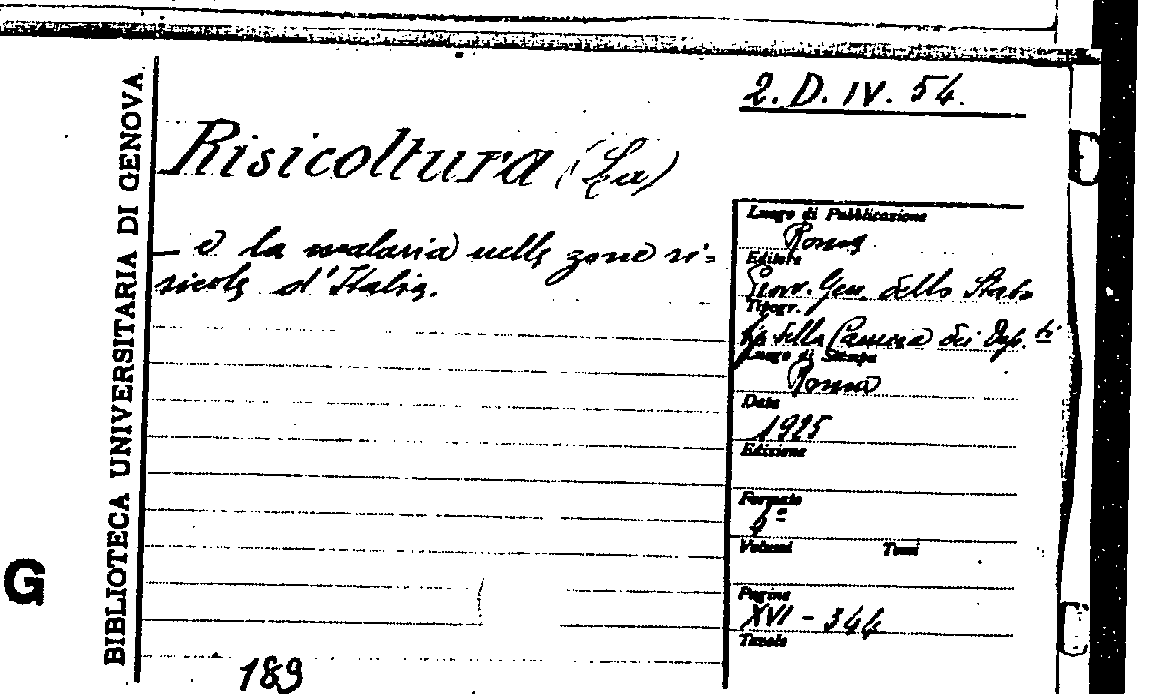 BIBLIOTECA UNIVERSITARIA DI GENOVA
2. D. IV. 54.
Risicoltura (La)
— e la malaria nelle zone ri=
sicole d'Italia.
Luogo di Pubblicazione
Roma
Editore
Provv. Gen. dello Stato
Tipogr.
Tip. della Camera dei Dep.ti
Luogo di Stampa
Roma
Data
1925
Edizione
Formato
Volumi Tomi
Pagine
XVI - 344
Tavole
G
189